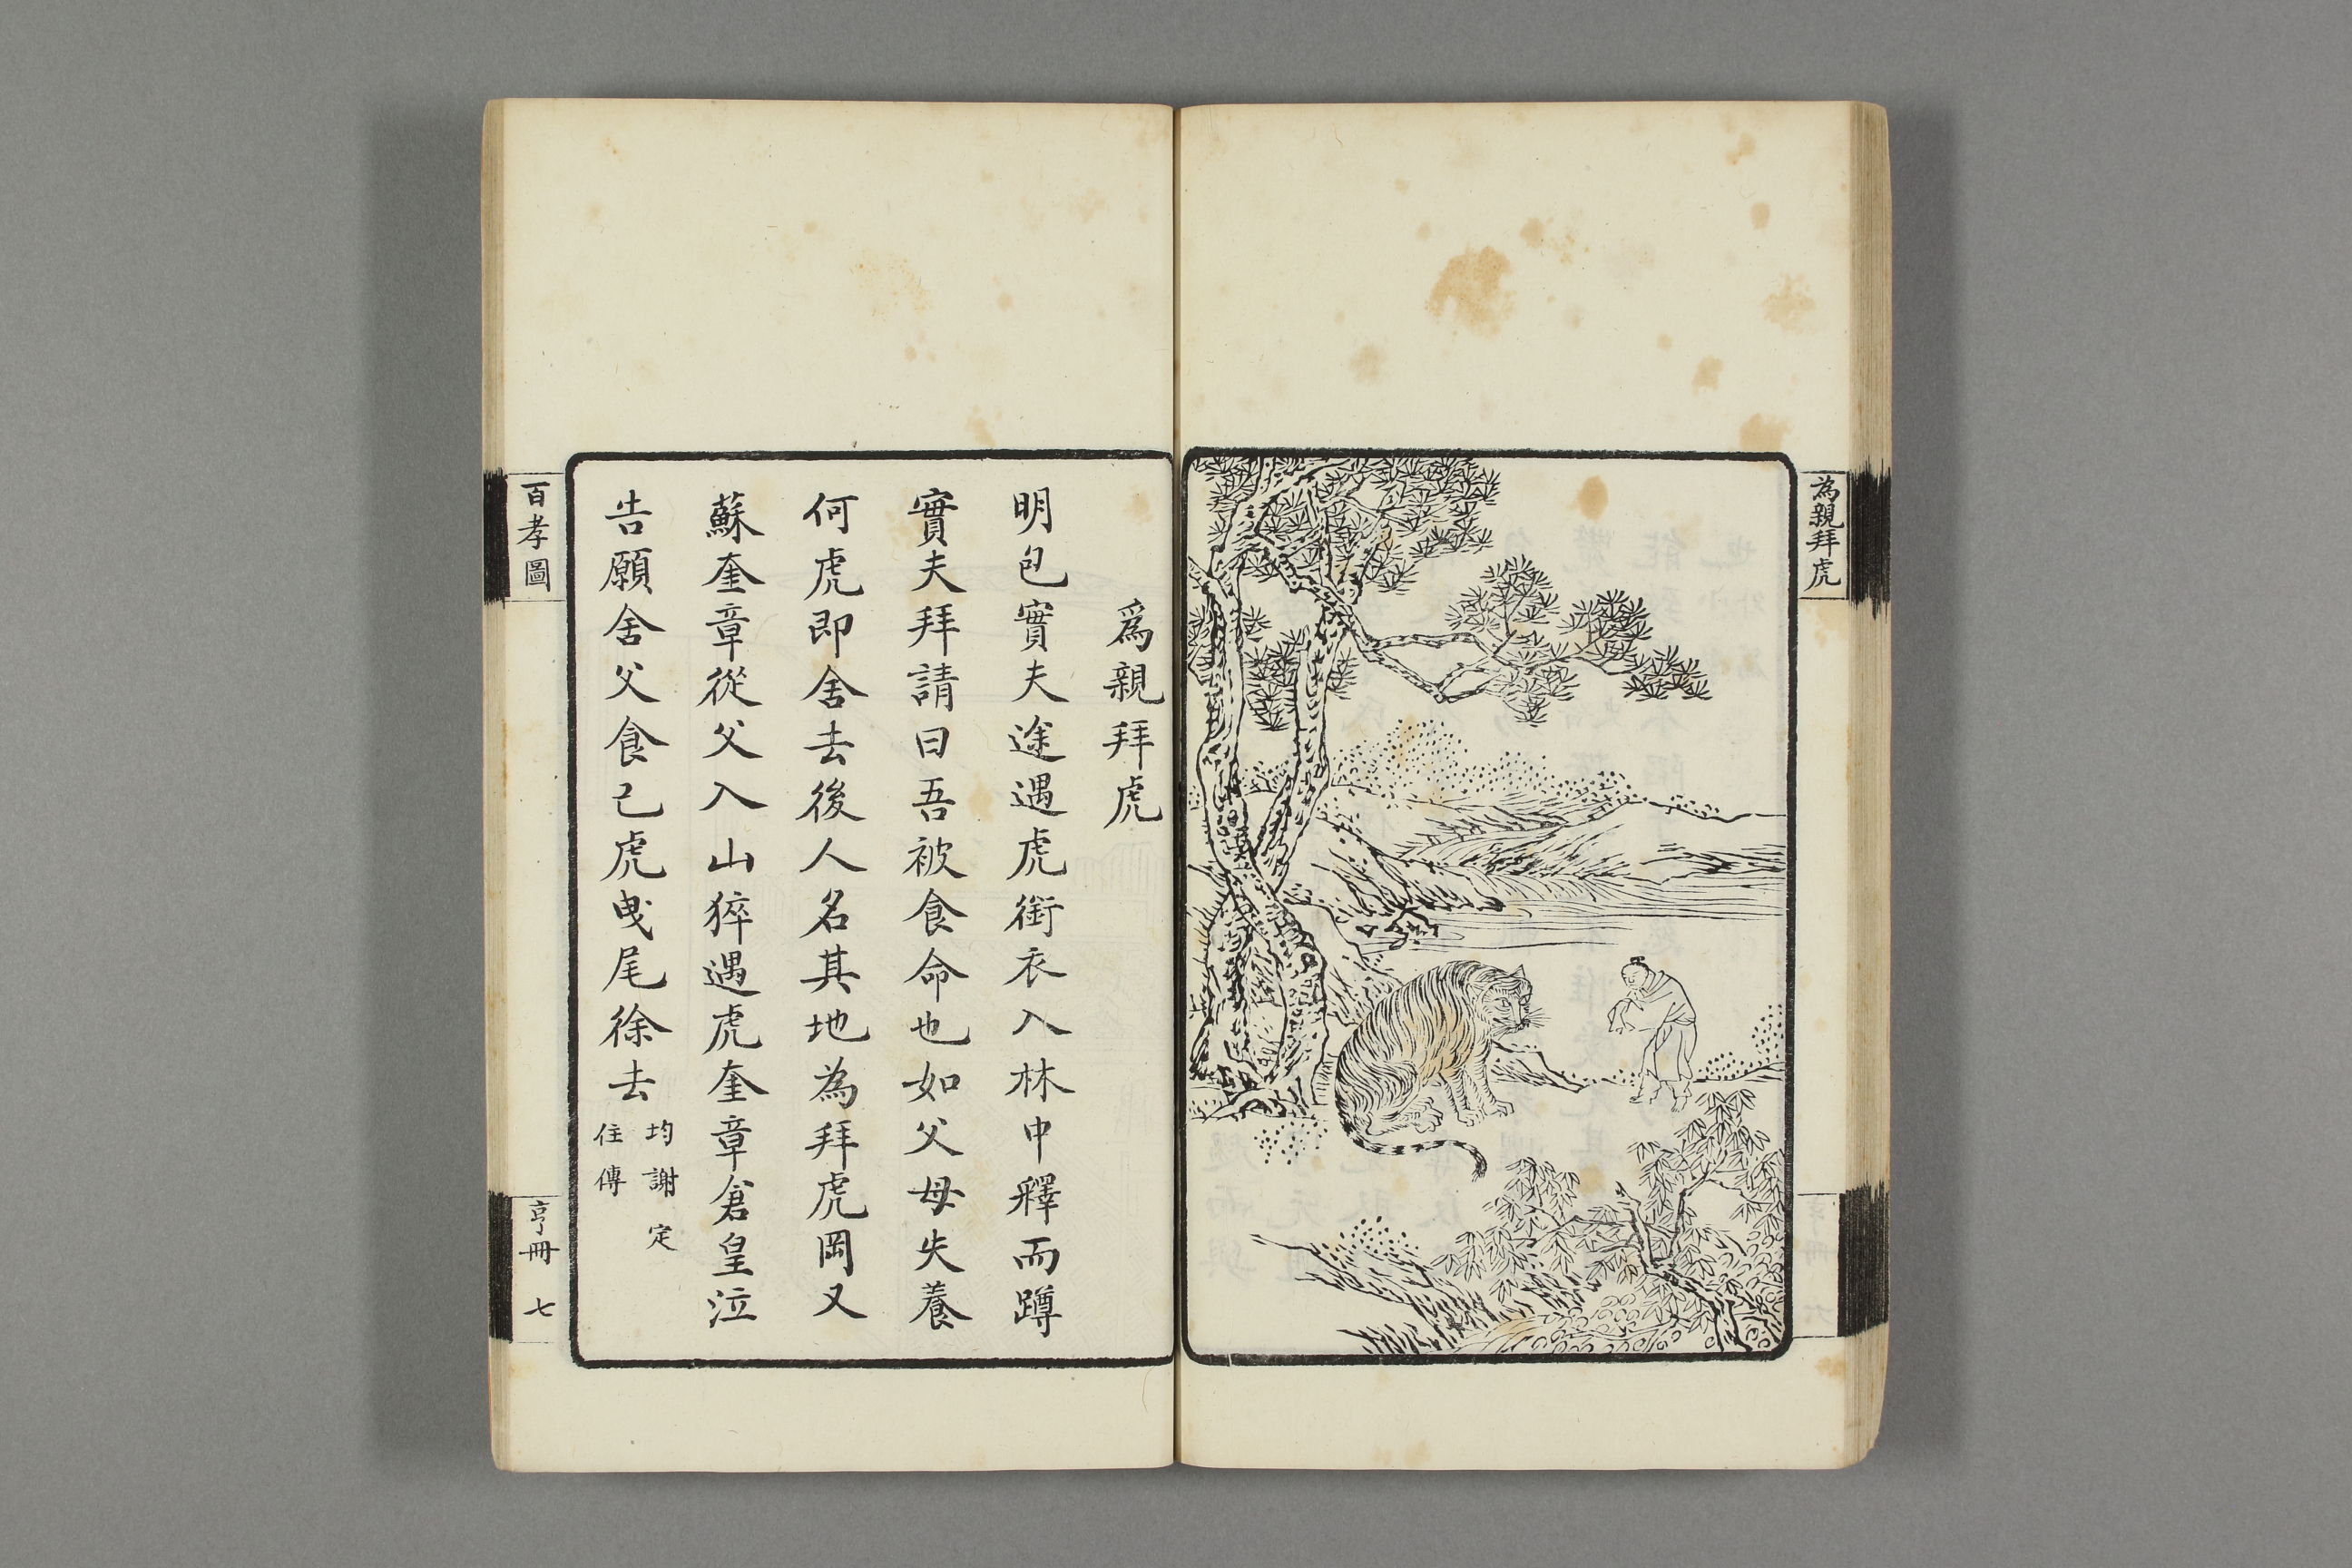 為親拜虎
爲親拜虎
明包實夫途遇虎銜衣入林中釋而蹲
實夫拜請曰吾被食命也如父母失養
何虎即舍去後人名其地為拜虎岡又
蘇奎章從父入山猝遇虎奎章倉皇泣
告願舍父食己虎曳尾徐去
均謝定
住傳
百孝圖
亨冊 七